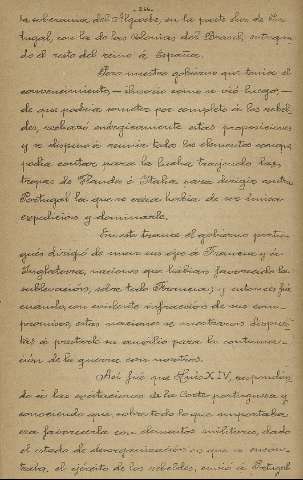 - 216 -
la soberanía del Algarbe, en la parte sur de Por-
tugal, con la de las Colonias del Brasil, entregan-
do el resto del reino á España.
Pero nuestro gobierno que tenía el
convencimiento, — ilusorio como se vió luego, —
de que podría someter por completo á los rebel-
des, rechazó enérgicamente estas proposiciones
y se dispuso á reunir todos los elementos conque
podía contar para la lucha trayendo las
tropas de Flandes é Italia para dirigir contra
Portugal la que se creía había de ser última
expedición y dominarle.
En este trance el gobierno portu-
gués dirigió de nuevo sus ojos á Francia y á
Inglaterra, naciones que habían favorecido la
sublevación, sobre todo Francia; y entonces fué
cuando, con evidente infracción de sus com-
promisos, estas naciones se mostraron dispues-
tas á prestarle su auxilio para la continua-
ción de la guerra con nosotros.
Así fué que Luis XIV, respondien-
do á las excitaciones de la Corte portuguesa y
conociendo que, sobre todo lo que importaba
era favorecerla con elementos militares, dado
el estado de desorganización en que se encon-
traba, el ejército de los rebeldes, envió á Portugal